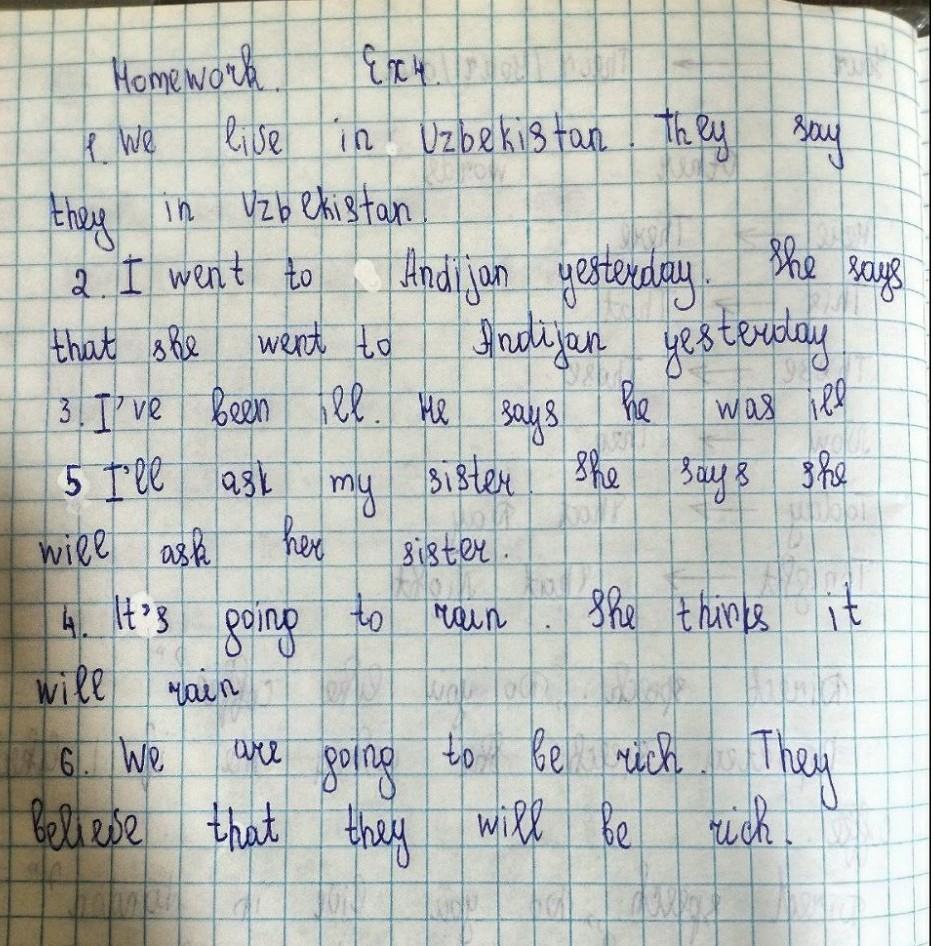 Homework. Ex 4.
1. We live in Uzbekistan. They say
they in Uzbekistan.
2. I went to Andijan yesterday. She says
that she went to Andijan yesterday
3. I've been ill. He says he was ill
5 I'll ask my sister. She says she
will ask her sister.
4. It's going to rain. She thinks it
will rain
6. We are going to be rich. They
believe that they will be rich.